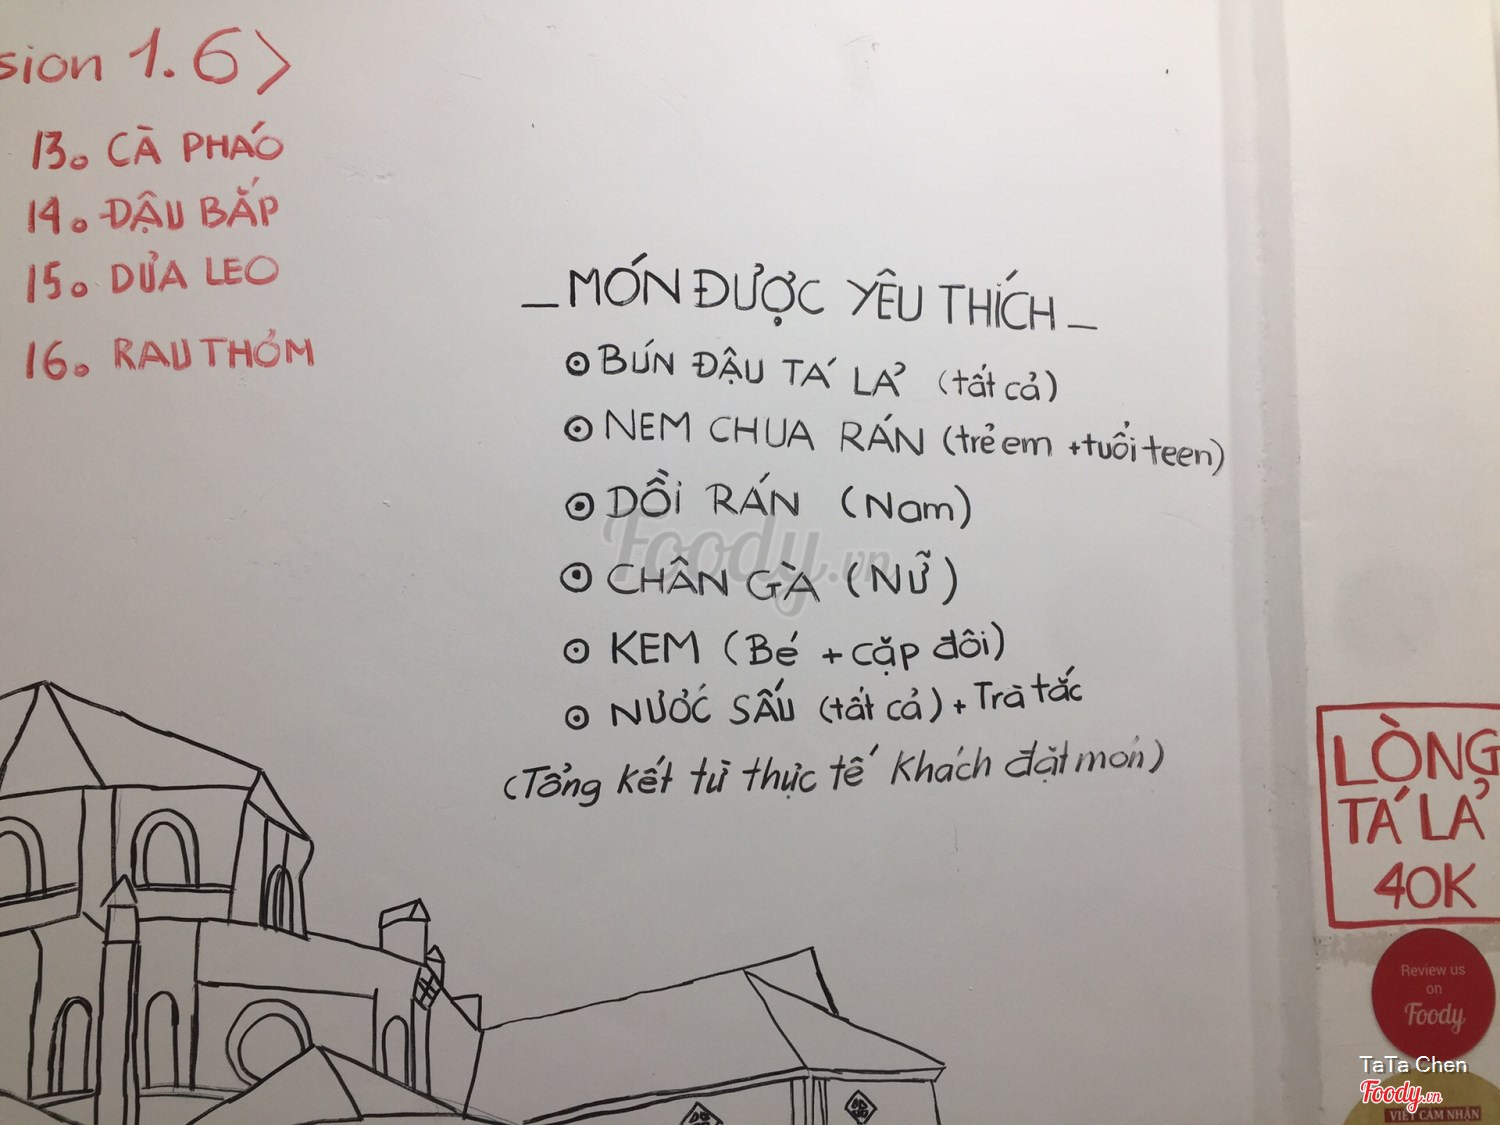 sion 1.6>
13. CÀ PHÁO
14. ĐẬU BẮP
15. DƯA LEO
16. RAU THƠM
_ MÓN ĐƯỢC YÊU THÍCH _
BÚN ĐẬU TÁ LẢ (tất cả)
NEM CHUA RÁN (trẻ em + tuổi teen)
DỒI RÁN (Nam)
CHÂN GÀ (NỮ)
KEM (Bé + cặp đôi)
NƯỚC SẤU (tất cả) + Trà tắc
(Tổng kết từ thực tế khách đặt món)
Foody.vn
LÒNG
TÁ LẢ
40K
Review us
on
Foody
TaTa Chen
Foody.vn
VIẾT CẢM NHẬN